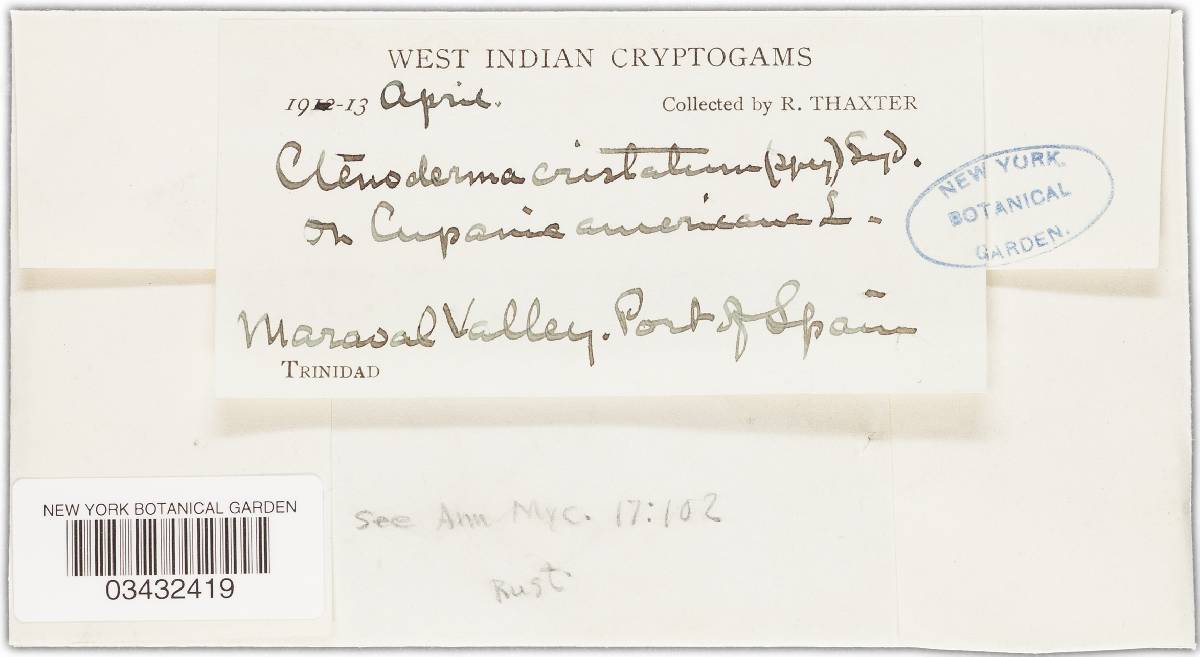 WEST INDIAN CRYPTOGAMS
1912-13 April. Collected by R. THAXTER
Ctenoderma cristatum (Speg) Syd.
on Cupania americana L.
Maraval Valley. Port of Spain
TRINIDAD
NEW YORK
BOTANICAL
GARDEN.
NEW YORK BOTANICAL GARDEN
03432419
See Ann Myc. 17:102
Rust